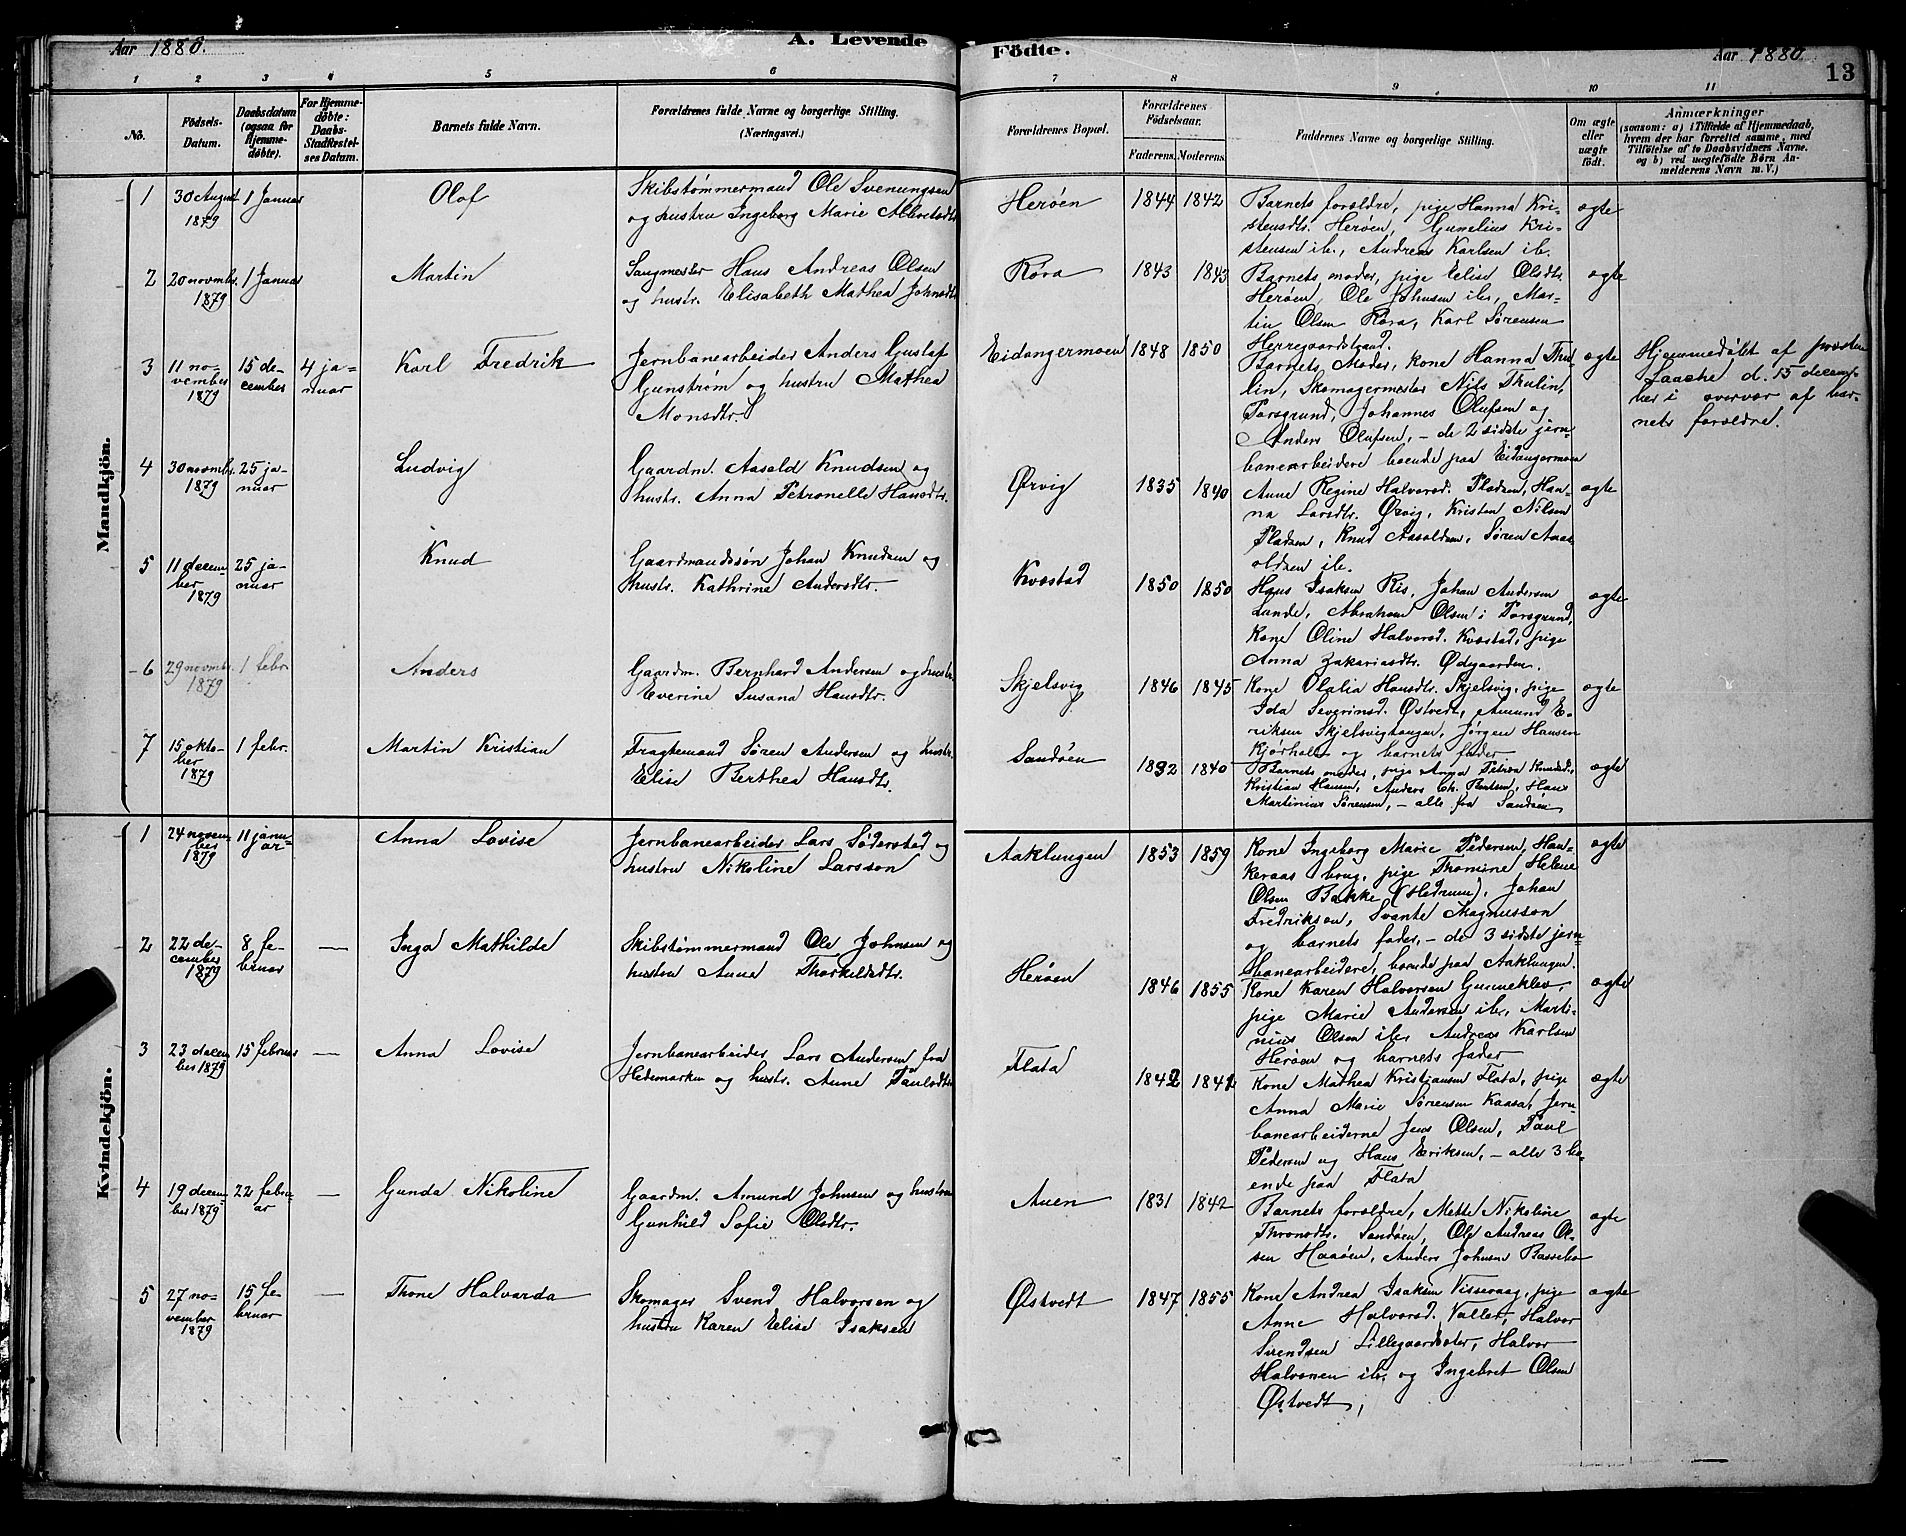 Aar 1880.
A. Levende Födte.
Aar 1880
13
1 2 3 4 5 6 7 8 9 10 11
No.
Födsels-Datum.
Daabsdatum (ogsaa for Hjemme-döbte).
For Hjemme-döbte: Daabs-Stadfæstel-ses Datum.
Barnets fulde Navn.
Forældrenes fulde Navne og borgerlige Stilling.
(Næringsvei.)
Forældrenes Bopæl.
Forældrenes Födselsaar.
Faderens. Moderens.
Faddernes Navne og borgerlige Stilling.
Om ægte eller uægte födt.
Anmærkninger
(saasom: a) i Tilfælde af Hjemmedaab,
hvem der har forrettet samme, med
Tilföielse af to Daabsvidners Navne.
og b) ved uægtefödte Börn An-
melderens Navn m. V.)
Mandkjön.
1 30 August 1879 1 Januar Olaf
Skibstømmermand Ole Svenungsen
og hustru Ingeborg Marie
Herøen 1844 1842
Barnets forældre, pige Hanna Kri-
stensdtr. Herøen, Gunelius Kri-
stensen ib., Andreas Karlsen ib.
ægte
2 20 novmbr. 1879 1 Januar Martin
Saugmester Hans Andreas Olsen
og hustr. Elisabeth Mathea Johnsdtr
Røra 1843 1843
Barnets moder, pige Elise Olsdtr.
Herøen, Ole Johnsen ib., Mar-
tin Olsen Røra, Karl Sørensen
Herregaardstrand.
ægte
3 11 no-vember 1879 15 de-cember 4 ja-nuar Karl Fredrik
Jernbanearbeider Anders Gustaf
Gunstrøm og hustru Mathea
Monsdtr.
Eidangermoen 1848 1850
Barnets Moder, kone Hanna Thu-
lin, Skomagermester Nils Thulin,
Porsgrund, Johannes Olufsen og
Anders Olufsen, – de 2 sidste jern-
banearbeidere boende paa Eidangermoen
ægte
Hjemmedøbt af præsten
Laache d. 15 decem-
ber i overvær af bar-
nets forældre.
4 30 novmbr. 1879 25 ja-nuar Ludvig
Gaardm. Aasold Knudsen og
hustr. Anna Petronelle Hansdtr.
Ørvig 1835 1840
Anne Regine Halvorsd. Pladsen, Han-
na Larsdtr. Ørvig, Kristen Nilsen
Pladsen, Knud Aasoldsen, Søren Aas-
oldsen ib.
ægte
5 11 decem-ber 1879 25 ja-nuar Knud
Gaardmandssøn Johan Knudsen og
hustr. Kathrine Andersdtr.
Kvæstad 1850 1850
Hans Isaksen Ris, Johan Andersen
Lunde, Abraham Olsen i Porsgrund,
Kone Oline Halvorsd. Kvæstad, pige
Anna Zakariasdtr. Ødegaarden.
ægte
6 29 novmbr. 1879 1 febr. Anders
Gaardm. Bernhard Andersen og hustr.
Everine Susana Hansdtr.
Skjelsvig 1846 1845
Kone Olalia Hansdtr. Skjelsvig, pige
Ida Severinsd. Østvedt, Amund E-
riksen Skjelsvigtangen, Jørgen Hansen
Kjørholt og barnets fader
ægte
7 15 okto-ber 1879 1 febr. Martin Kristian
Fragtemand Søren Andersen og hustr.
Elise Berthea Hansdtr.
Sandøen 1832 1840
Barnets moder, pige Anna Petrea Knudsdtr,
Kristian Hansen, Anders Chr. Bentsen, Hans
Martinius Sørensen, – alle fra Sandøen
ægte
Kvindekjön.
1 24 novem-ber 1879 11 janu-ar Anna Lovise
Jernbanearbeider Lars Søderstad og
hustru Nikoline Larsson
Aaklungen 1853 1859
Kone Ingeborg Marie Pedersen, Han-
keraas brug, pige Thomine Helene
Olsen Bakke (Hedrum), Johan
Fredriksen, Svante Magnusson
og barnets fader, – de 3 sidste jern-
banearbeidere, boende paa Aaklungen.
ægte
2 22 de-cember 1879 8 fe-bruar — Inga Mathilde
Skibstømmermand Ole Johnsen og
hustru Anne Thorkildsdtr.
Herøen 1846 1855
Kone Karen Halvorsen Gunneklev,
pige Marie Andersen ib., Marti-
nius Olsen ib., Andreas Karlsen
Herøen og barnets fader
ægte
3 23 decem-ber 1879 15 februar — Anna Lovise
Jernbanearbeider Lars Andersen fra
Hedemarken og hustr. Anne Paulsdtr
Flata 1842 1842
Kone Mathea Kristiansen Flata, pige
Anna Marie Sørensen Kaasa, Jern-
banearbeiderne Jens Olsen, Paul
Pedersen og Hans Eriksen, – alle 3 bo-
ende paa Flata
ægte
4 19 decem-ber 1879 22 febru-ar — Gunda Nikoline
Gaardm. Amund Johnsen og hustru
Gunhild Sofie Olsdtr.
Auen 1831 1842
Barnets forældre, Mette Nikoline
Thronsdtr. Sandøen, Ole Andreas Ol-
sen Haaøen, Anders Johnsen Bassebo
ægte
5 27 no-vember 1879 15 fe-bruar — Thone Halvarda
Skomager Svend Halvorsen og
hustru Karen Elise Isaksen
Østvedt 1847 1855
Kone Andrea Isaksen Vissevaag, pige
Anne Halvorsd. Valler, Halvor
Svendsen Lillegaardsæter, Halvor
Halvorsen ib. og Ingebret Olsen
Østvedt,
ægte